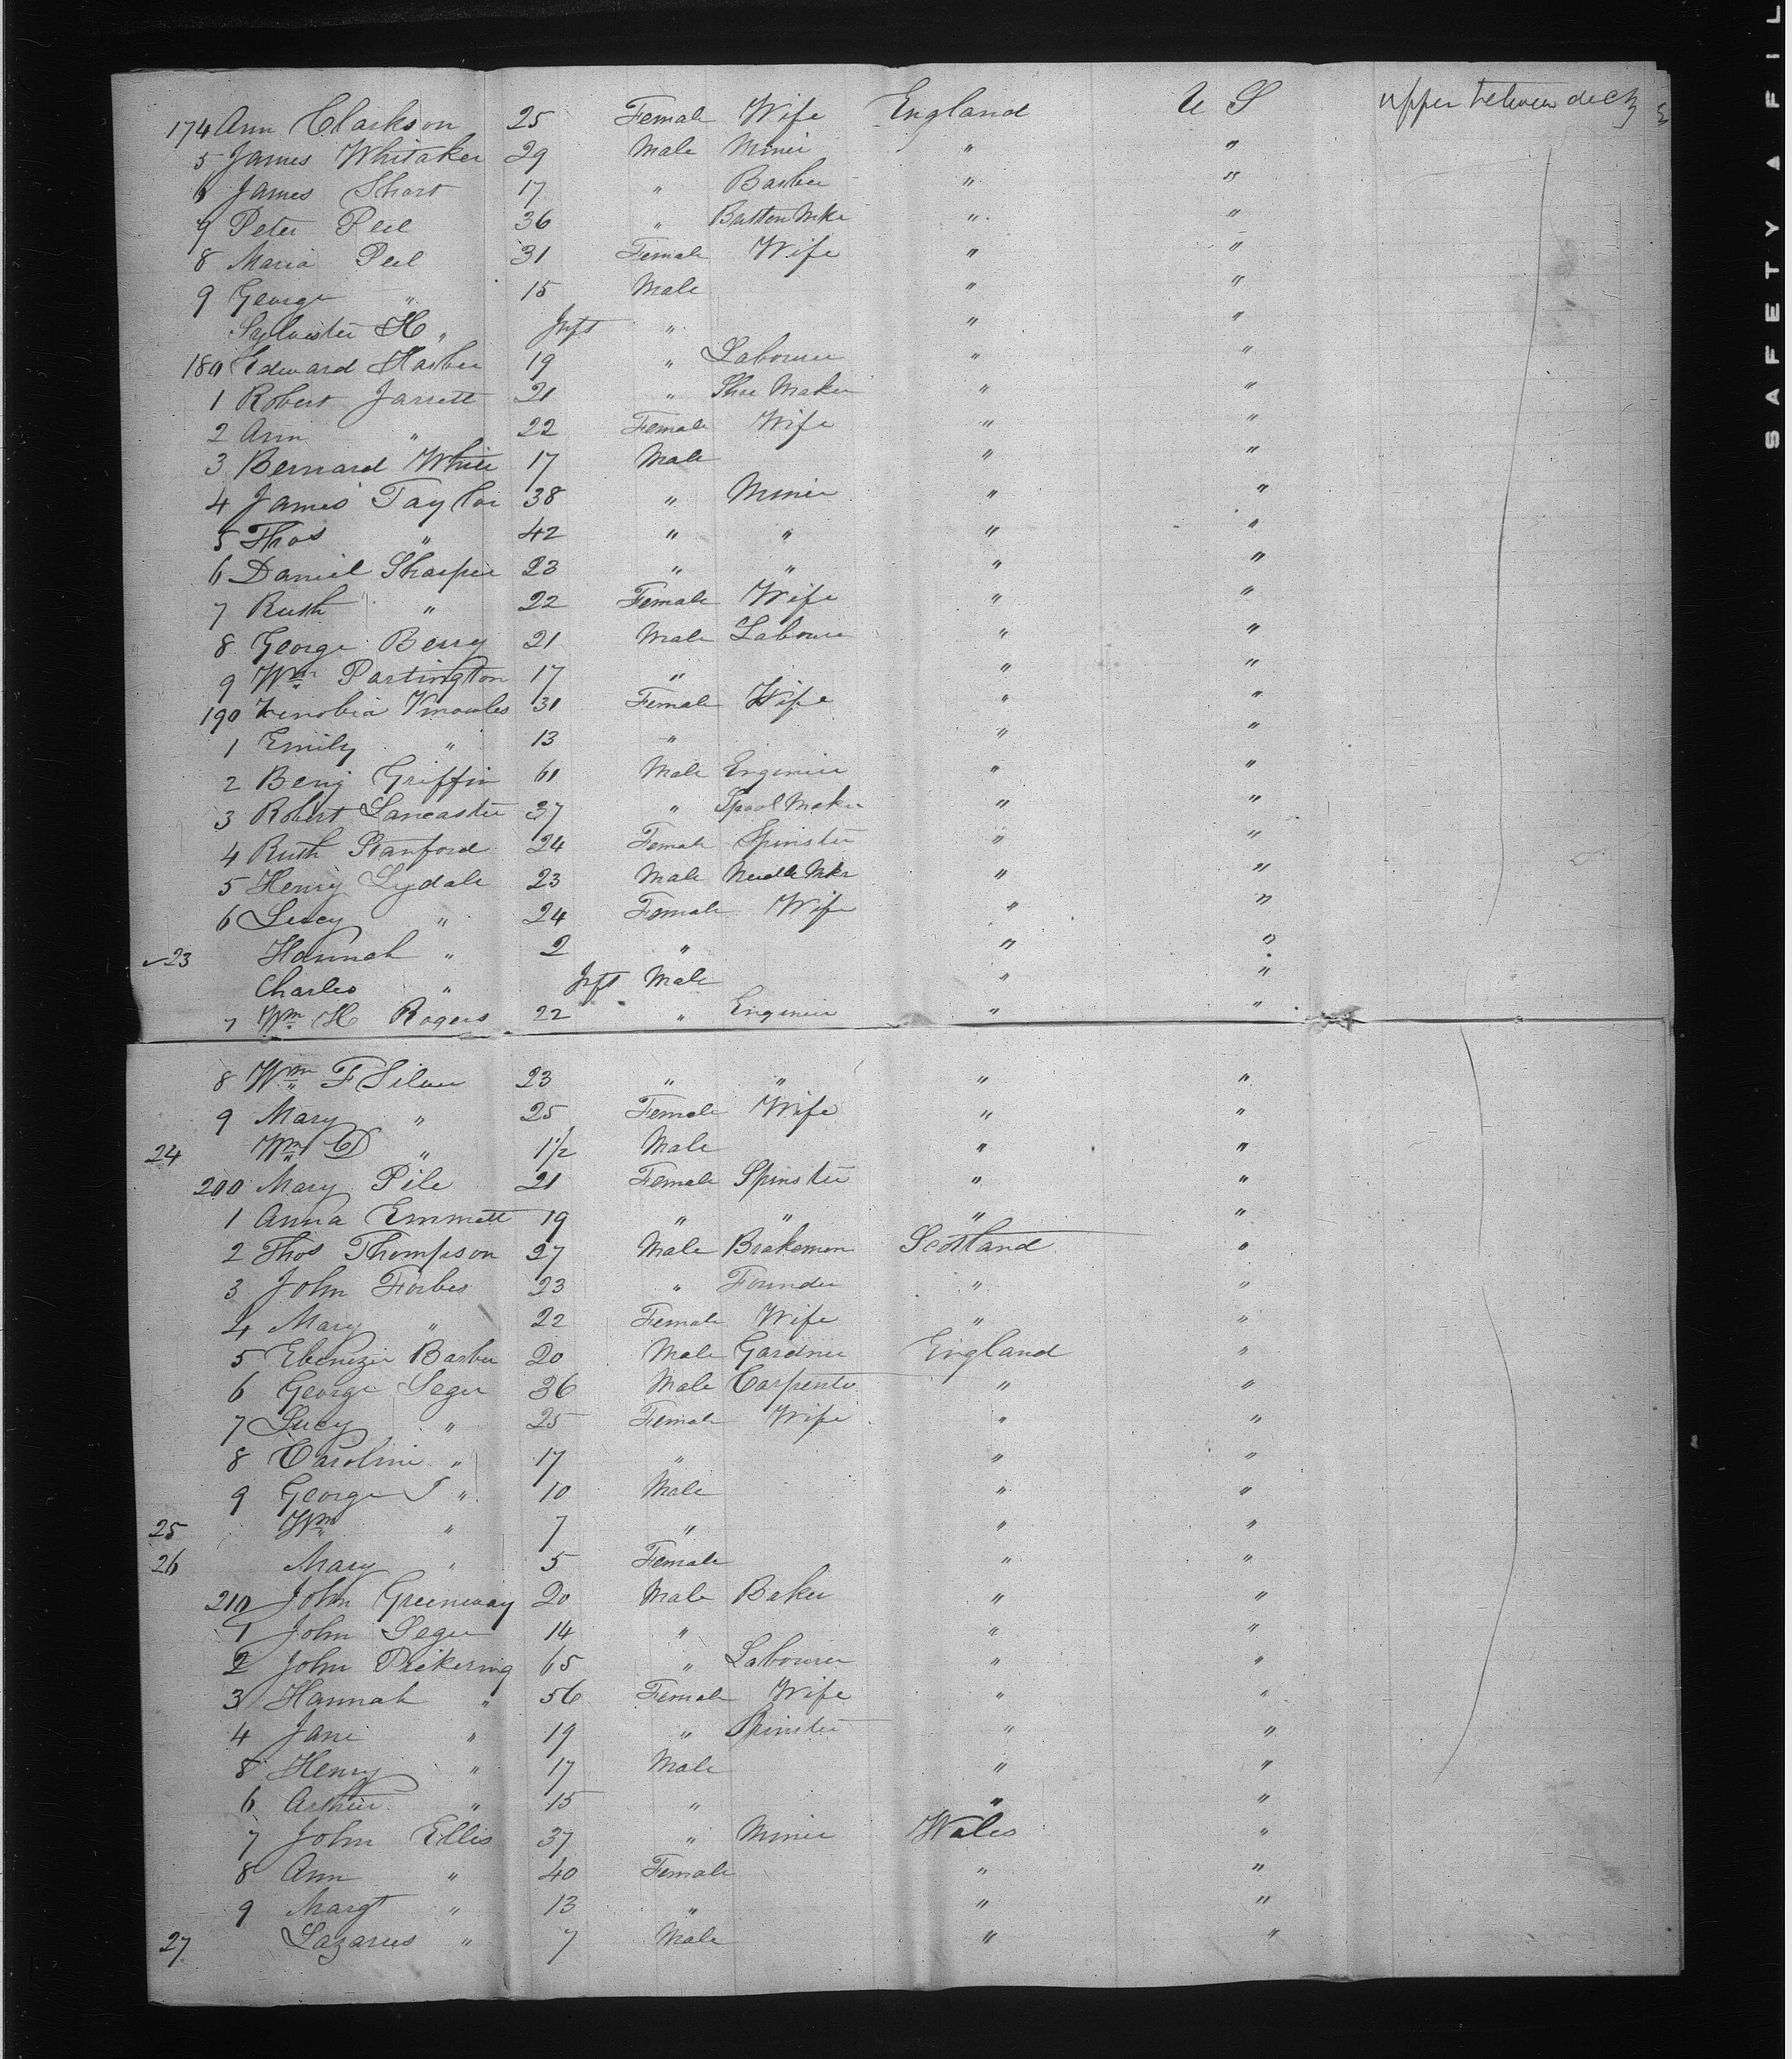 174 Ann Clarkson 25 Female Wife England U S Upper between deck
5 James Whitaker 29 Male Miner " "
6 James Short 17 " Barber " "
7 Peter Peel 36 " Button Mkr " "
8 Maria Peel 31 Female Wife " "
9 George " 15 Male " "
Sylvester H " Inft " " "
180 Edward Harber 19 " Labourer " "
1 Robert Jarrett 21 " Shoe Maker " "
2 Ann " 22 Female Wife " "
3 Bernard White 17 Male " "
4 James Taylor 38 " Miner " "
5 Thos " 42 " " " "
6 Daniel Sharper 23 " " " "
7 Ruth " 22 Female Wife " "
8 George Berry 21 Male Labourer " "
9 Wm Partington 17 " " "
190 Zenobia Knowles 31 Female Wife " "
1 Emily " 13 " " "
2 Benj Griffin 61 Male Engineer " "
3 Robert Lancaster 37 " Spool Maker " "
4 Ruth Stanford 24 Female Spinster " "
5 Henry Lydale 23 Male Needle Mkr " "
6 Lucy " 24 Female Wife " "
23 Hannah " 2 " " "
Charles " Inft Male " "
7 Wm H Rogers 22 " Engineer " "
8 Wm F Silver 23 " " " "
9 Mary " 25 Female Wife " "
24 Wm D " 1½ Male " "
200 Mary Pile 21 Female Spinster " "
1 Anna Emmett 19 " " " "
2 Thos Thompson 27 Male Brakeman Scotland "
3 John Forbes 23 " Founder " "
4 Mary " 22 Female Wife " "
5 Ebenezer Barber 20 Male Gardner England "
6 George Seger 36 Male Carpenter " "
7 Lucy " 25 Female Wife " "
8 Caroline " 17 " " "
9 George J " 10 Male " "
25 Wm " 7 " " "
26 Mary " 5 Female " "
210 John Greenway 20 Male Baker " "
1 John Seger 14 " " "
2 John Pickering 65 " Labourer " "
3 Hannah " 56 Female Wife " "
4 Jane " 19 " Spinster " "
5 Henry " 17 Male " "
6 Arthur " 15 " " "
7 John Ellis 37 " Miner Wales "
8 Ann " 40 Female " "
9 Margt " 13 " " "
27 Lazarus " 7 Male " "
SAFETY A FIL